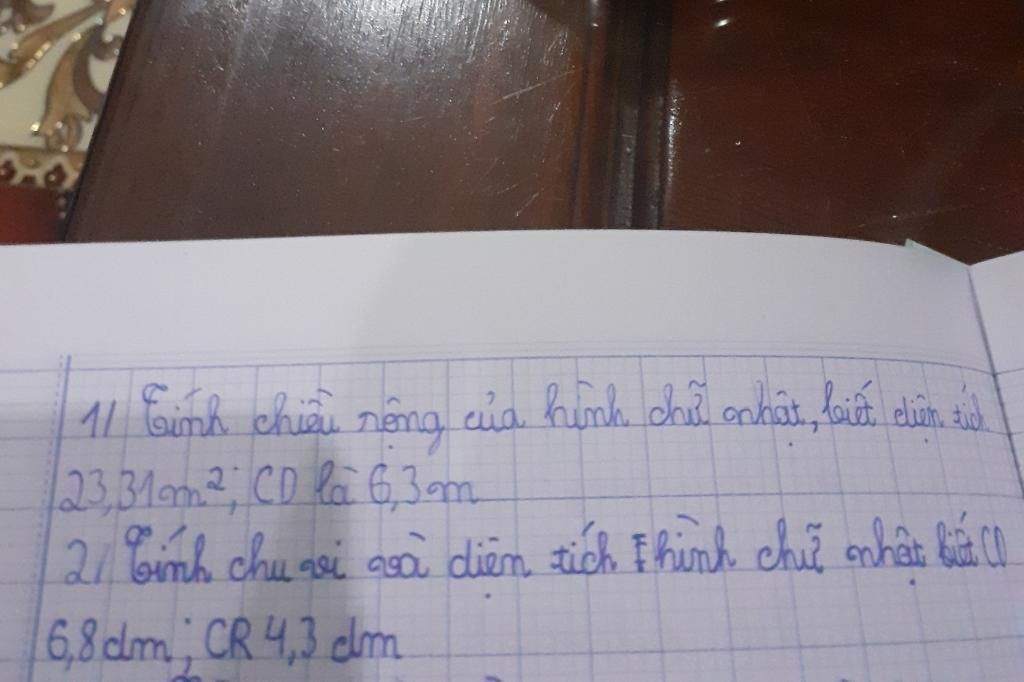 1/ Tính chiều rộng của hình chữ nhật, biết diện tích
23,31m²; CD là 6,3m
2/ Tính chu vi và diện tích hình chữ nhật biết CD
6,8dm; CR 4,3 dm